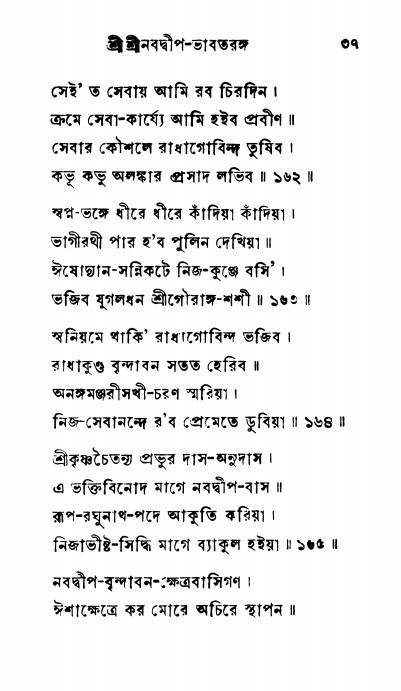 শ্রীশ্রীনবদ্বীপ-ভাবতরঙ্গ ৩৭
সেই’ ত সেবায় আমি রব চিরদিন ।
ক্রমে সেবা-কার্য্যে আমি হইব প্রবীণ ॥
সেবার কৌশলে রাধাগোবিন্দ তুষিব ।
কভূ কভু অলঙ্কার প্রসাদ লভিব ॥ ১৬২ ॥
স্বপ্ন-ভঙ্গে ধীরে ধীরে কাঁদিয়া কাঁদিয়া ।
ভাগীরথী পার হ’ব পুলিন দেখিয়া ॥
ঈষোদ্যান-সন্নিকটে নিজ-কুঞ্জে বসি’ ।
ভজিব যুগলধন শ্রীগৌরাঙ্গ-শশী ॥ ১৬৩ ॥
স্বনিয়মে থাকি’ রাধাগোবিন্দ ভজিব ।
রাধাকুণ্ড বৃন্দাবন সতত হেরিব ॥
অনঙ্গমঞ্জরীসখী-চরণ স্মরিয়া ।
নিজ-সেবানন্দে র’ব প্রেমেতে ডুবিয়া ॥ ১৬৪ ॥
শ্রীকৃষ্ণচৈতন্য প্রভুর দাস-অনুদাস ।
এ ভক্তিবিনোদ মাগে নবদ্বীপ-বাস ॥
রূপ-রঘুনাথ-পদে আকুতি করিয়া ।
নিজাভীষ্ট-সিদ্ধি মাগে ব্যাকুল হইয়া ॥ ১৬৫ ॥
নবদ্বীপ-বৃন্দাবন-ক্ষেত্রবাসিগণ ।
ঈশাক্ষেত্রে কর মোরে অচিরে স্থাপন ॥